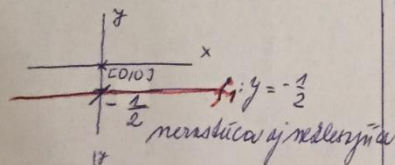 y
x
[0,0]
f₁: y = -1/2
-1/2
nerastúca aj neklesajúca
y